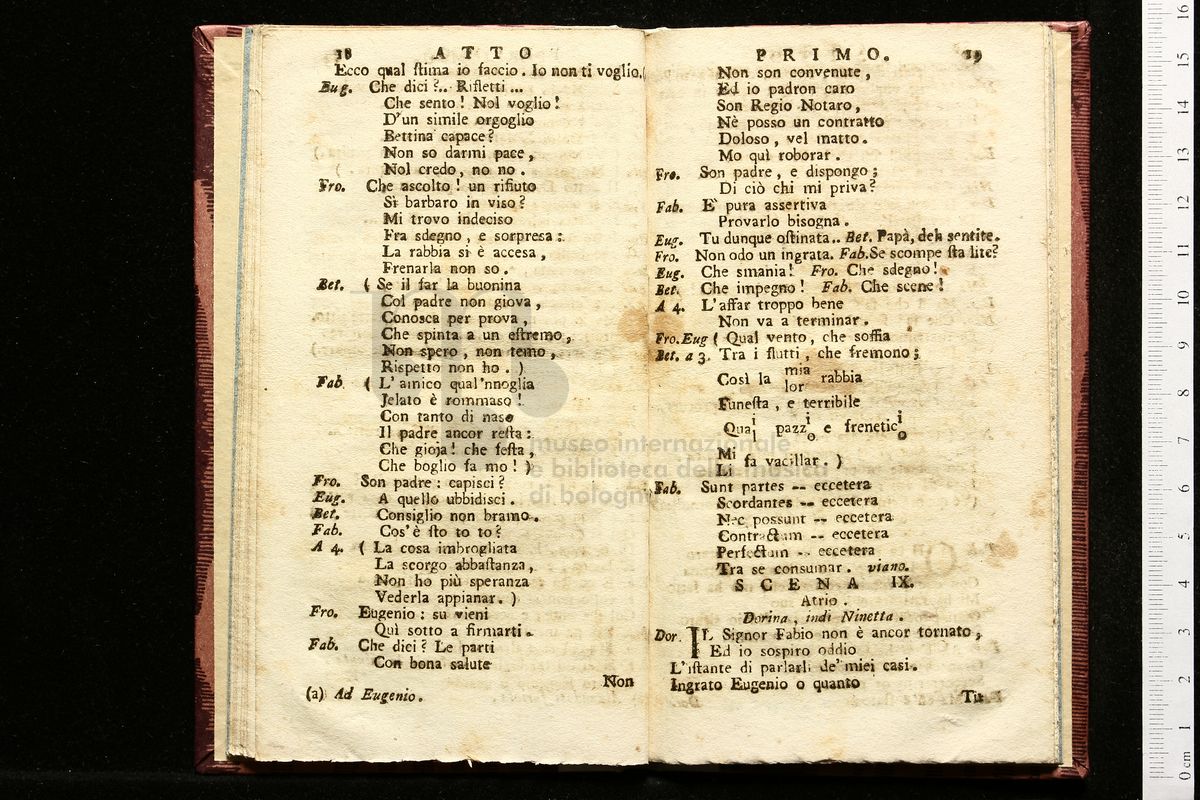 38 ATTO
Ecco qual ſtima io faccio. Io non ti voglio.(
Eug. Che dici?.. Rifletti ...
Che sento! Nol voglio!
D'un simile orgoglio
Bettina capace?
Non so darmi pace,
Nol credo, no no.
Fro. Che ascolto! un rifiuto
Sì barbaro in viso?
Mi trovo indeciso
Fra sdegno, e sorpresa:
La rabbia si è accesa,
Frenarla non so.
Bet. ( Se il far la buonina
Col padre non giova,
Conosca per prova,
Che spinta a un eſtremo,
Non spero, non temo,
Rispetto non ho. )
Fab. ( L' amico qual'nnoglia
Jelato è rommaso!
Con tanto di naso
Il padre ancor reſta:
Che gioja! che feſta,
Che boglio fa mo! )
Fro. Son padre: capisci?
Eug. A quello ubbidisci.
Bet. Consiglio non bramo.
Fab. Cos'è ſto to to?
A 4. ( La cosa imbrogliata
La scorgo abbaſtanza,
Non ho più speranza
Vederla appianar. )
Fro. Eugenio: su vieni
Quì sotto a firmarti.
Fab. Che dici? Le parti
Con bona salute
Non
(a) Ad Eugenio.
PRIMO. 39
Non son convenute,
Ed io padron caro
Son Regio Notaro,
Nè posso un contratto
Doloso, vel matto.
Mo quì roborar.
Fro. Son padre, e dispongo;
Di ciò chi mi priva?
Fab. E' pura assertiva
Provarlo bisogna.
Eug. Tu dunque oſtinata.. Bet. Papà, deh sentite.
Fro. Non odo un ingrata. Fab. Se scompe ſta lite?
Eug. Che smania! Fro. Che sdegno!
Bet. Che impegno! Fab. Che scene!
A 4. L'affar troppo bene
Non va a terminar.
Fro. Eug ( Qual vento, che soffia
Bet. a 3. Tra i flutti, che fremono;
mia
Così la rabbia
lor
Funeſta, e terribile
i i i
Qua pazz e frenetic
l o o
Mi
fa vacillar. )
Li
Fab. Sunt partes -- eccetera
Scordantes -- eccetera
Nec possunt -- eccetera
Contractum -- eccetera
Perfectum -- eccetera
Tra se consumar. viano.
SCENA IX.
Atrio.
Dorina, indi Ninetta.
Dor. IL Signor Fabio non è ancor tornato,
Ed io sospiro oddio
L'iſtante di parlarli de' miei casi.
Ingrato Eugenio o quanto
Tu
museo internazionale
e biblioteca della musica
di bologna
0 cm 1 2 3 4 5 6 7 8 9 10 11 12 13 14 15 16